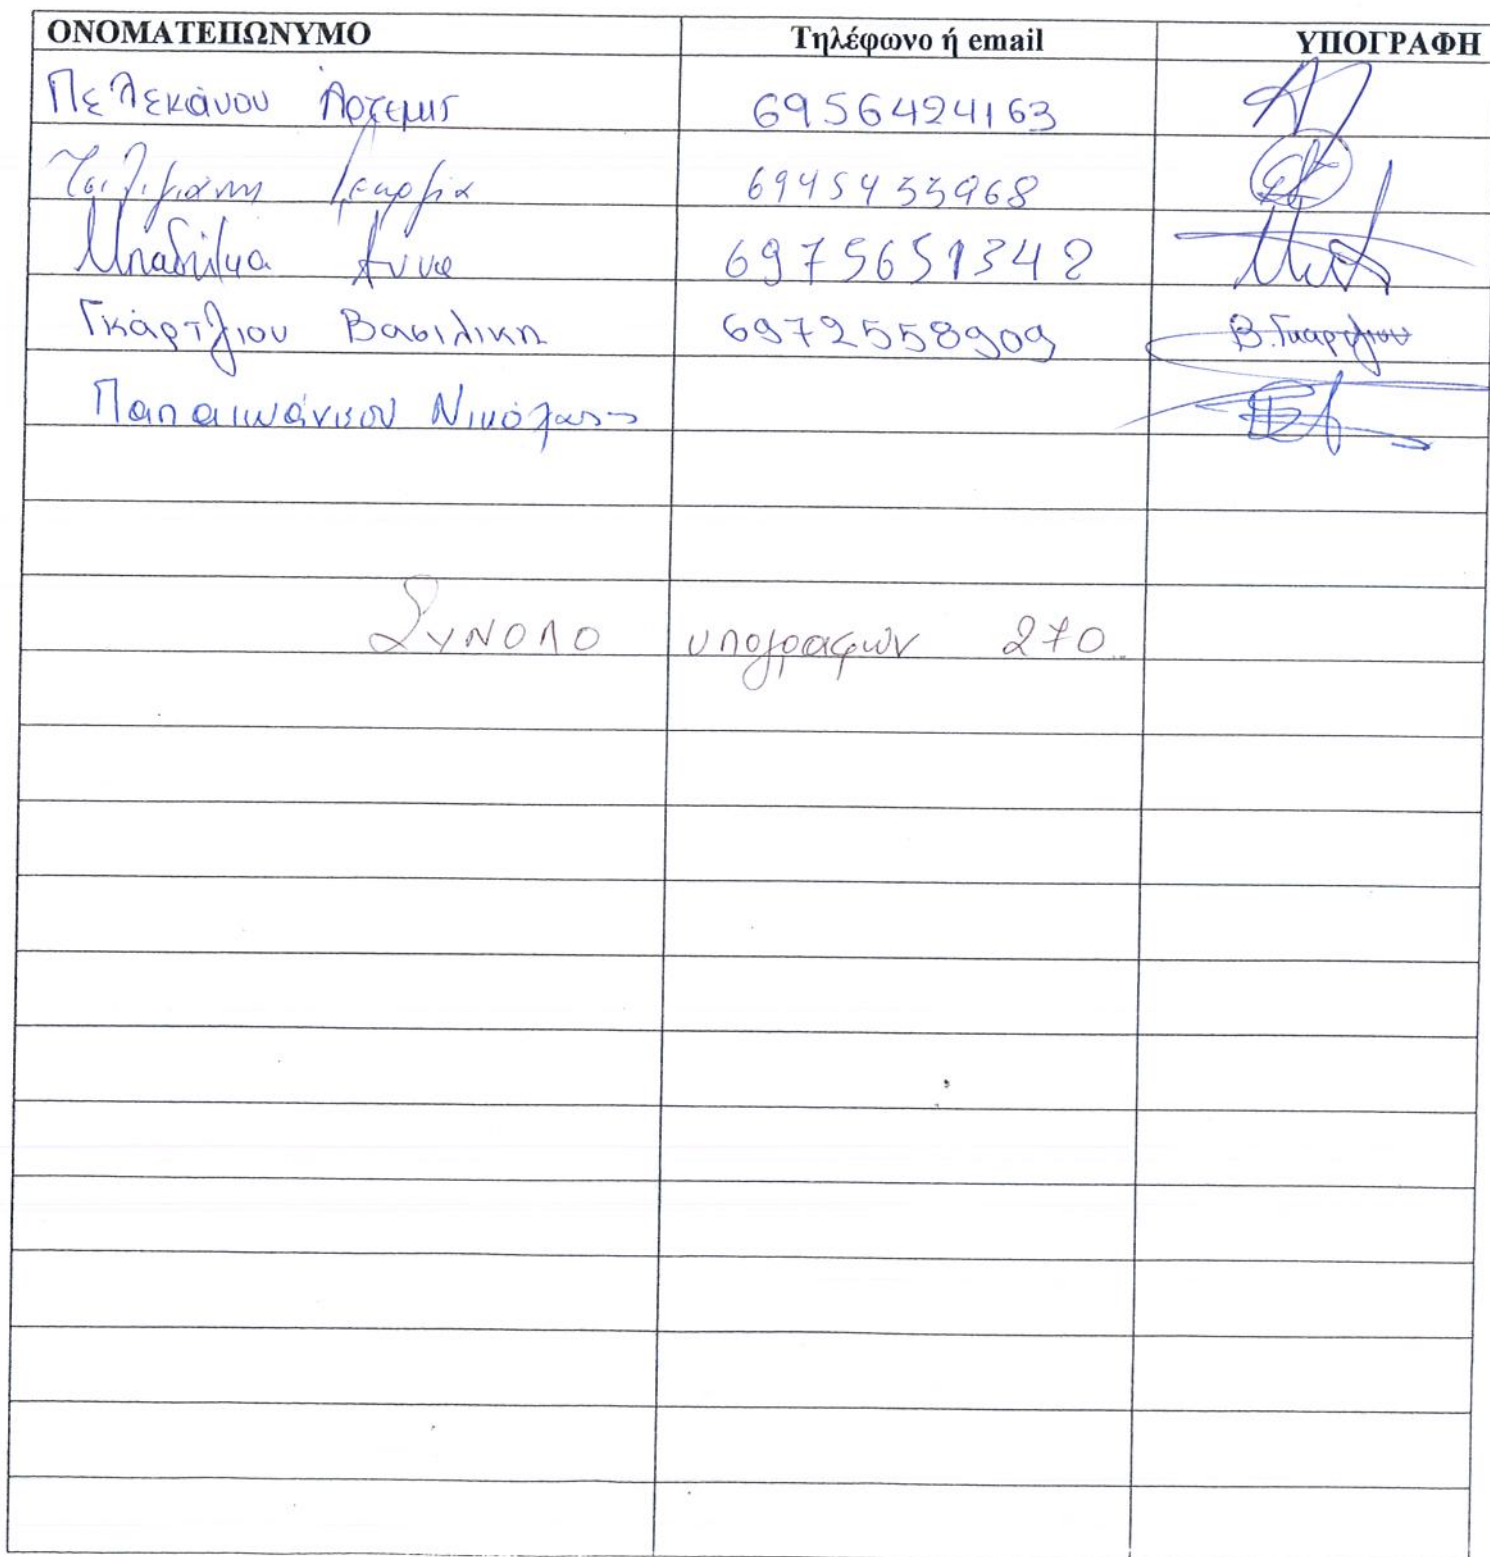 ΟΝΟΜΑΤΕΠΩΝΥΜΟ Τηλέφωνο ή email ΥΠΟΓΡΑΦΗ
Πελεκάνου Άρτεμις 6956424163
Γεωργία 6945455968
Άννα 6975651342
Γκάρτζιου Βασιλικη 6972558909 Β. Γκαρτζιου
Παπαιωάννου Νικόλαος
ΣΥΝΟΛΟ υπογραφών 270